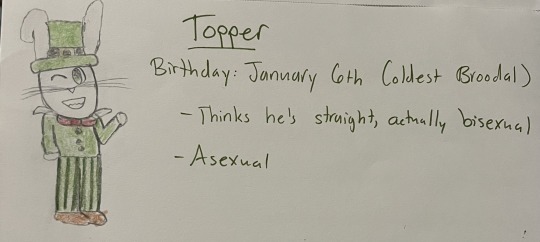 Topper
Birthday: January 6th (oldest Broodal)
- Thinks he's straight, actually bisexual
- Asexual